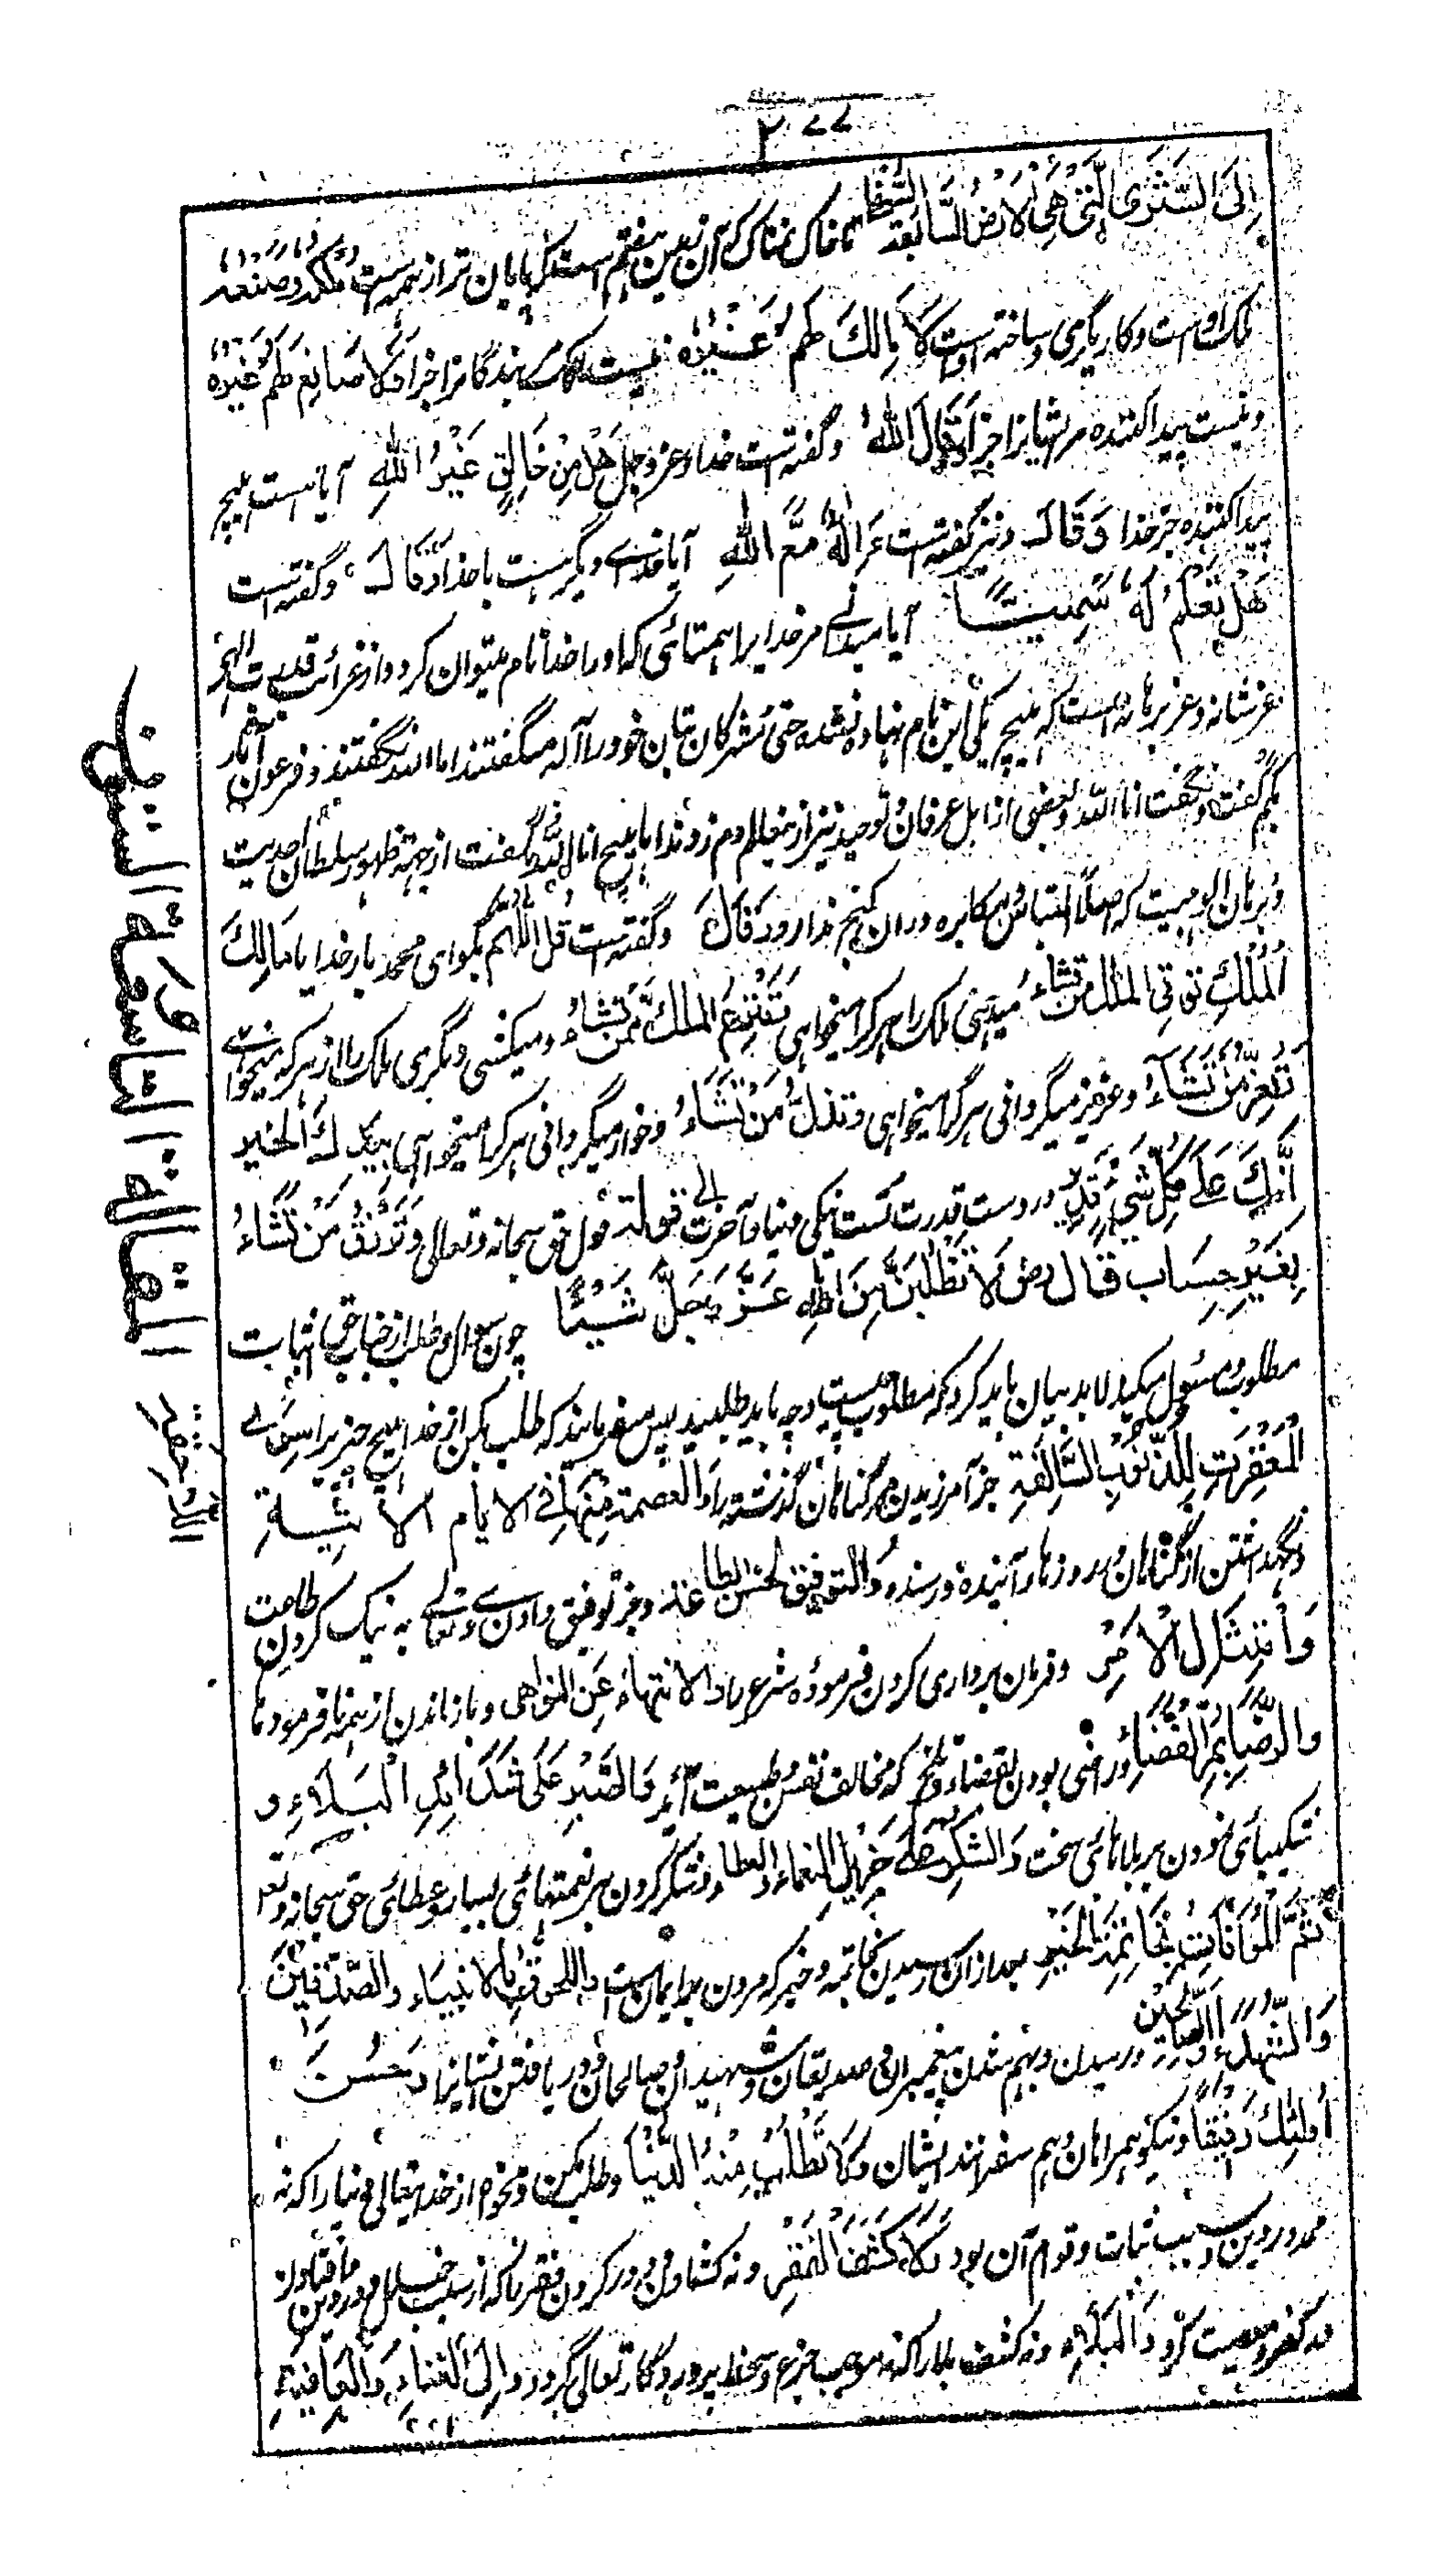 ٣٧٧
اِلَى الثَّرَى الَّتِي هِيَ الْاَرْضُ السَّابِعَةُ السُّفْلَى تا خاک نمناک که آن زمین هفتم است که پایان تر از همه است مُلْكُهُ وَصَنْعَتُهُ
ملک اوست و کاریگری و ساخته اوست لَا مَالِكَ لَهُمْ غَيْرُهُ نیست مالک مر بندگانرا جز او وَلَا صَانِعَ لَهُمْ غَيْرُهُ
و نیست پیدا کننده مر ایشانرا جز او وَقَالَ اللهُ و گفته است خدا عز و جل هَلْ مِنْ خَالِقٍ غَيْرُ اللهِ آیا هست هیچ
پیدا کننده جز خدا وَقَالَ و نیز گفته است ءَاِلٰهٌ مَّعَ اللهِ آیا خدای دیگر هست با خدا وَقَالَ و گفته است
هَلْ تَعْلَمُ لَهُ سَمِيًّا آیا میدانی مر خدایرا همتائی که او را خدا نام میتوان کرد و از غرائب قدرت الهی
عز شانه و عز برهانه است که هیچ یکی این نام نهاده نشده حتی مشرکان بتان خود را آله میگفتند اما الله نگفتند و فرعون انا ربکم
گفت و نگفت انا الله و بعضی از اهل عرفان توحید نیز از دم زدند اما هیچ انا الله نگفت از جهت ظهور سلطان احدیت
و برهان الوهیت که اصلا التباس و مکابره دران گنج ندارد وَقَالَ و گفته است قُلِ اللّٰهُمَّ بگو ای محمد بار خدایا مَالِكَ
الْمُلْكِ تُؤْتِي الْمُلْكَ مَنْ تَشَاءُ میدهی ملک را هر کرا میخواهی وَتَنْزِعُ الْمُلْكَ مِمَّنْ تَشَاءُ و میکشی و میگیری ملک را از هر که میخواهی
وَتُعِزُّ مَنْ تَشَاءُ و عزیز میگردانی هر کرا میخواهی وَتُذِلُّ مَنْ تَشَاءُ و خوار میگردانی هر کرا میخواهی بِيَدِكَ الْخَيْرُ
اِنَّكَ عَلَى كُلِّ شَيْءٍ قَدِيرٌ در دست قدرت تست نیکی دنیا و آخرت الی قوله قول حق سبحانه و تعالی وَتَرْزُقُ مَنْ تَشَاءُ
بِغَيْرِ حِسَابٍ قال رض لَا تَطْلُبَنَّ مِنَ اللهِ عَزَّ وَجَلَّ شَيْئًا چون سوال و طلب از جناب حق اثبات
مطلوب و مسئول میکند لابد بیان باید کرد که مطلوب چیست و چه باید طلبید پس میفرمایند که طلب مکن از خدا هیچ چیز را سِوَى
الْمَغْفِرَةِ لِلذُّنُوبِ السَّالِفَةِ جز آمرزیدن مر گناهان گذشته را وَالْعِصْمَةِ مِنْهَا فِي الْاَيَّامِ الْاٰتِيَةِ
و نگهداشتن از گناهان در روزهای آینده و رسنده وَالتَّوْفِيقِ لِحُسْنِ الطَّاعَةِ و جز توفیق دادن وی تعالی به نیک کردن طاعت
وَامْتِثَالِ الْاَمْرِ و فرمان برداری کردن فرموده شرع را وَالْاِنْتِهَاءِ عَنِ النَّوَاهِي و باز ماندن از همه نافرمودها
وَالرِّضَا بِمُرِّ الْقَضَاءِ و راضی بودن بقضاء تلخ که مخالف نفس و طبیعت آید وَالصَّبْرِ عَلَى شَدَائِدِ الْبَلَاءِ و
شکیبائی نمودن بر بلاهائی سخت وَالشُّكْرِ عَلَى جَزِيلِ النَّعْمَاءِ وَالْعَطَاءِ و شکر کردن بر نعمتهائی بسیار و عطائی حق سبحانه و تعالی
ثُمَّ الْوَفَاةِ بِخَاتِمَةِ الْخَيْرِ بعد ازان رسیدن بخاتمه خیر که مردن بر ایمان است وَاللُّحُوقِ بِالْاَنْبِيَاءِ وَالصِّدِّيقِينَ
وَالشُّهَدَاءِ وَالصَّالِحِينَ و رسیدن و بهم شدن پیغمبران و صدیقان و شهیدان و صالحان و دریافتن ایشانرا وَحَسُنَ
اُولٰئِكَ رَفِيقًا و نیکو همراهان و هم سفرانند ایشان وَلَا تَطْلُبْ مِنْهُ الدُّنْيَا و طلب مکن و مخواه از خدا یتعالی دنیا را که نه
ممد در دین و سبب ثبات و قوام آن بود وَلَا كَشْفَ الْفَقْرِ و نه کشادن و دور کردن فقر را که از سبب خلل در دین و افتادن
در کفر و معصیت گردد وَالْبَلَاءِ و نه کشف بلا را که نه موجب جزع و سخط پروردگار تعالی گردد وَاِلَى الْغَنَاءِ وَالْعَافِيَةِ
المقالة التاسعة والستون